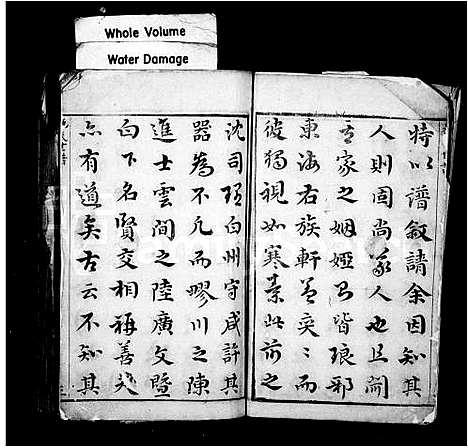 Whole Volume
Water Damage
特以譜叙請余因知其
人則固尚義人也且聞
其家之姻婭多皆琅邪
東海右族軒蓋奕々而
彼獨視如寒素此前之
沈司理白州守咸許其
器為不凡而膠川之陳
進士雲間之陸廣文暨
白下名賢交相稱善矣
亦有道矣古云不知其